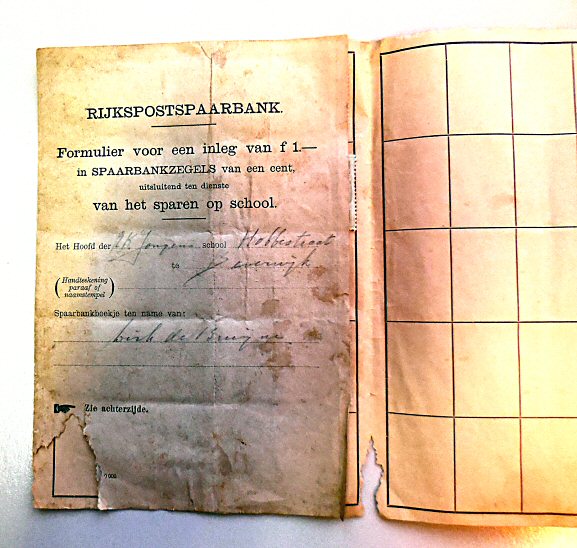 RIJKSPOSTSPAARBANK.
Formulier voor een inleg van f 1.—
in SPAARBANKZEGELS van een cent,
uitsluitend ten dienste
van het sparen op school.
Het Hoofd der R.K. Jongens school
te Beverwijk
(Handteekening
paraaf of
naamstempel)
Spaarbankboekje ten name van:
Dirk de Bruijn
Zie achterzijde.